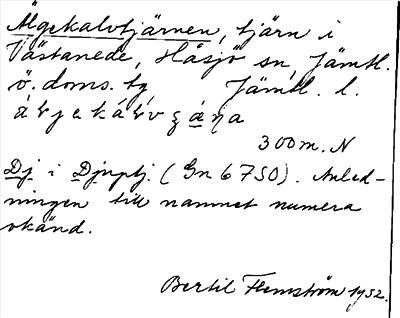 Älgekalvtjärnen, tjärn i
Västanede, Håsjö sn, Jämtl.
ö. doms. tg Jämtl. l.
300 m. N
Dj i Djuptj. (Gn 6750). Anled-
ningen till namnet numera
okänd.
Bertil Flemström 1952.